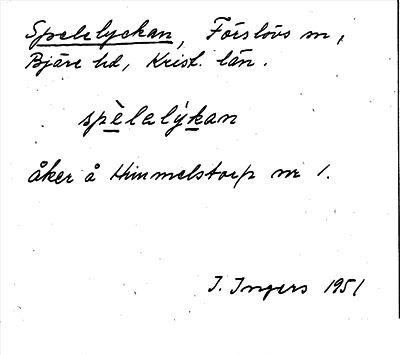 Spelelyckan, Förslövs sn,
Bjäre hd, Krist. län.
spèlelýkan
åker å Himmelstorp nr 1.
I. Ingers 1951